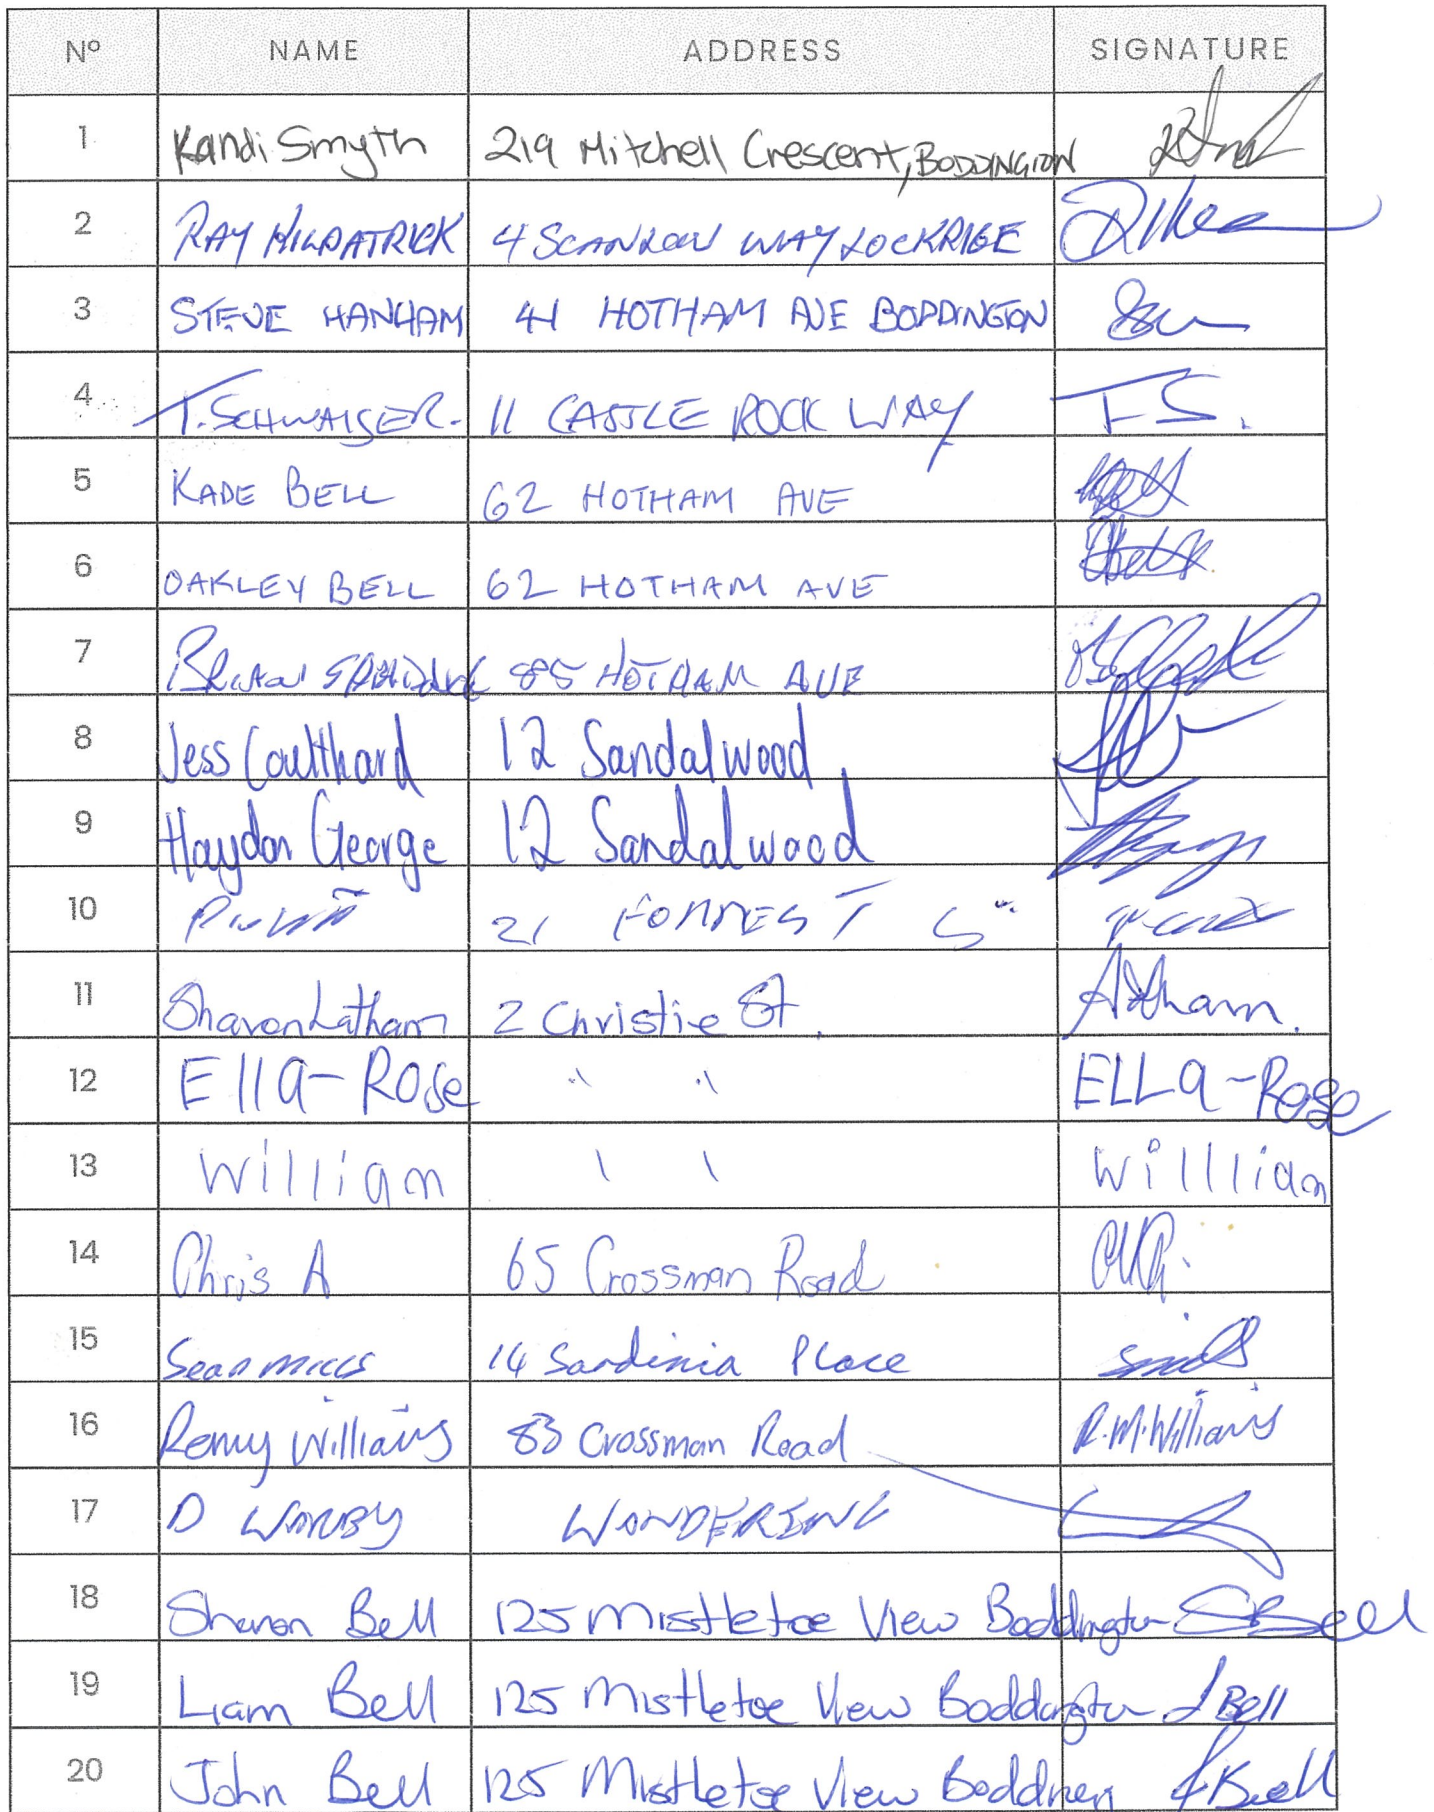 Nº NAME ADDRESS SIGNATURE
1 Kandi Smyth 219 Mitchell Crescent, BODDINGTON
2 RAY KILPATRICK 4 SCANLON WAY LOCKRIGE
3 STEVE HANHAM 41 HOTHAM AVE BODDINGTON
4 T. SCHWAIGER. 11 CASTLE ROCK WAY T S.
5 KADE BELL 62 HOTHAM AVE
6 OAKLEY BELL 62 HOTHAM AVE
7 85 HOTHAM AVE
8 Jess Coulthard 12 Sandalwood
9 Haydon George 12 Sandalwood
10 21 FORREST S
11 Sharon Latham 2 Christie St.
12 Ella-Rose " " ELLa-Rose
13 William \ \ Willliam
14 Chris A 65 Crossman Road
15 Sean Mills 14 Sardinia Place
16 Remy Williams 83 Crossman Road R.M.Williams
17 D WARBY WANDERING
18 Sharon Bell 125 Mistletoe View Boddington SBell
19 Liam Bell 125 Mistletoe View Boddington L Bell
20 John Bell 125 Mistletoe View J Bell